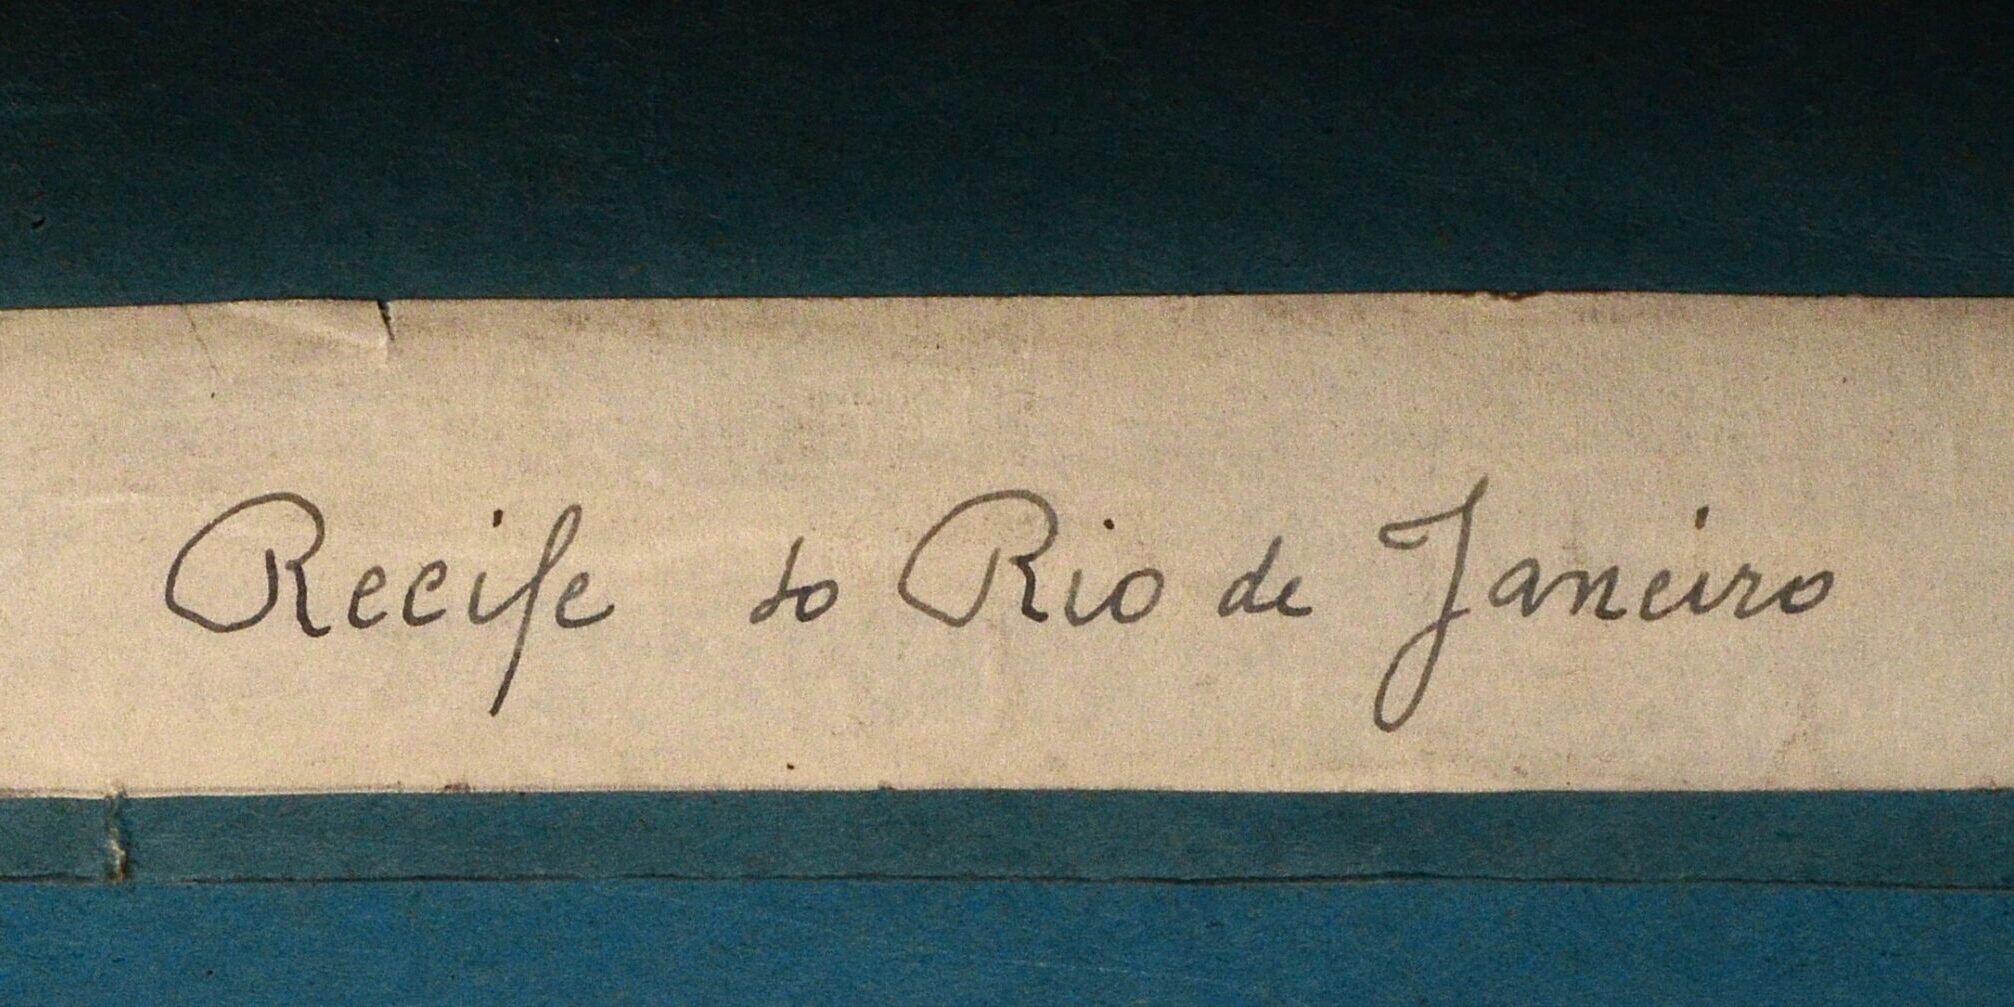 Recife to Rio de Janeiro